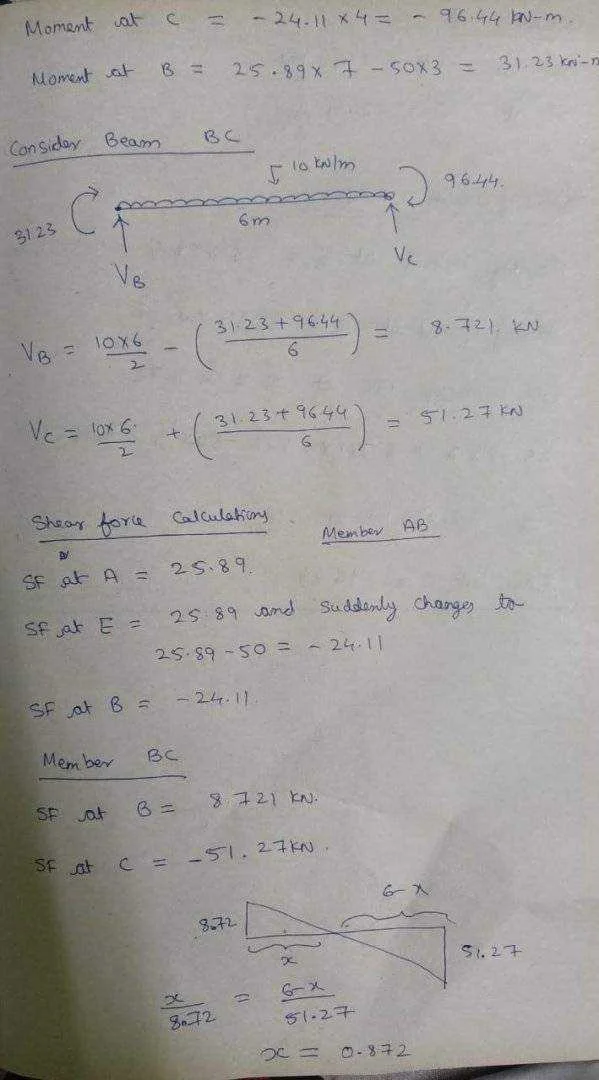 Moment at C = - 24.11 x 4 = - 96.44 kN-m.
Moment at B = 25.89 x 7 - 50x3 = 31.23 kN-m
Consider Beam BC
10 kN/m
96.44.
3123
6m
VB
Vc
VB = 10x6/2 - (31.23 + 96.44/6) = 8.721. KN
Vc = 10x6./2 + (31.23 + 9644/6) = 51.27 KN
Shear force Calculations
Member AB
SF at A = 25.89.
SF at E = 25.89 and suddenly changes to
25.89 - 50 = - 24.11
SF at B = - 24.11.
Member BC
SF at B = 8.721 KN.
SF at C = - 51.27KN.
6-x
8.72
x
51.27
x/8.72 = 6-x/51.27
x = 0.872